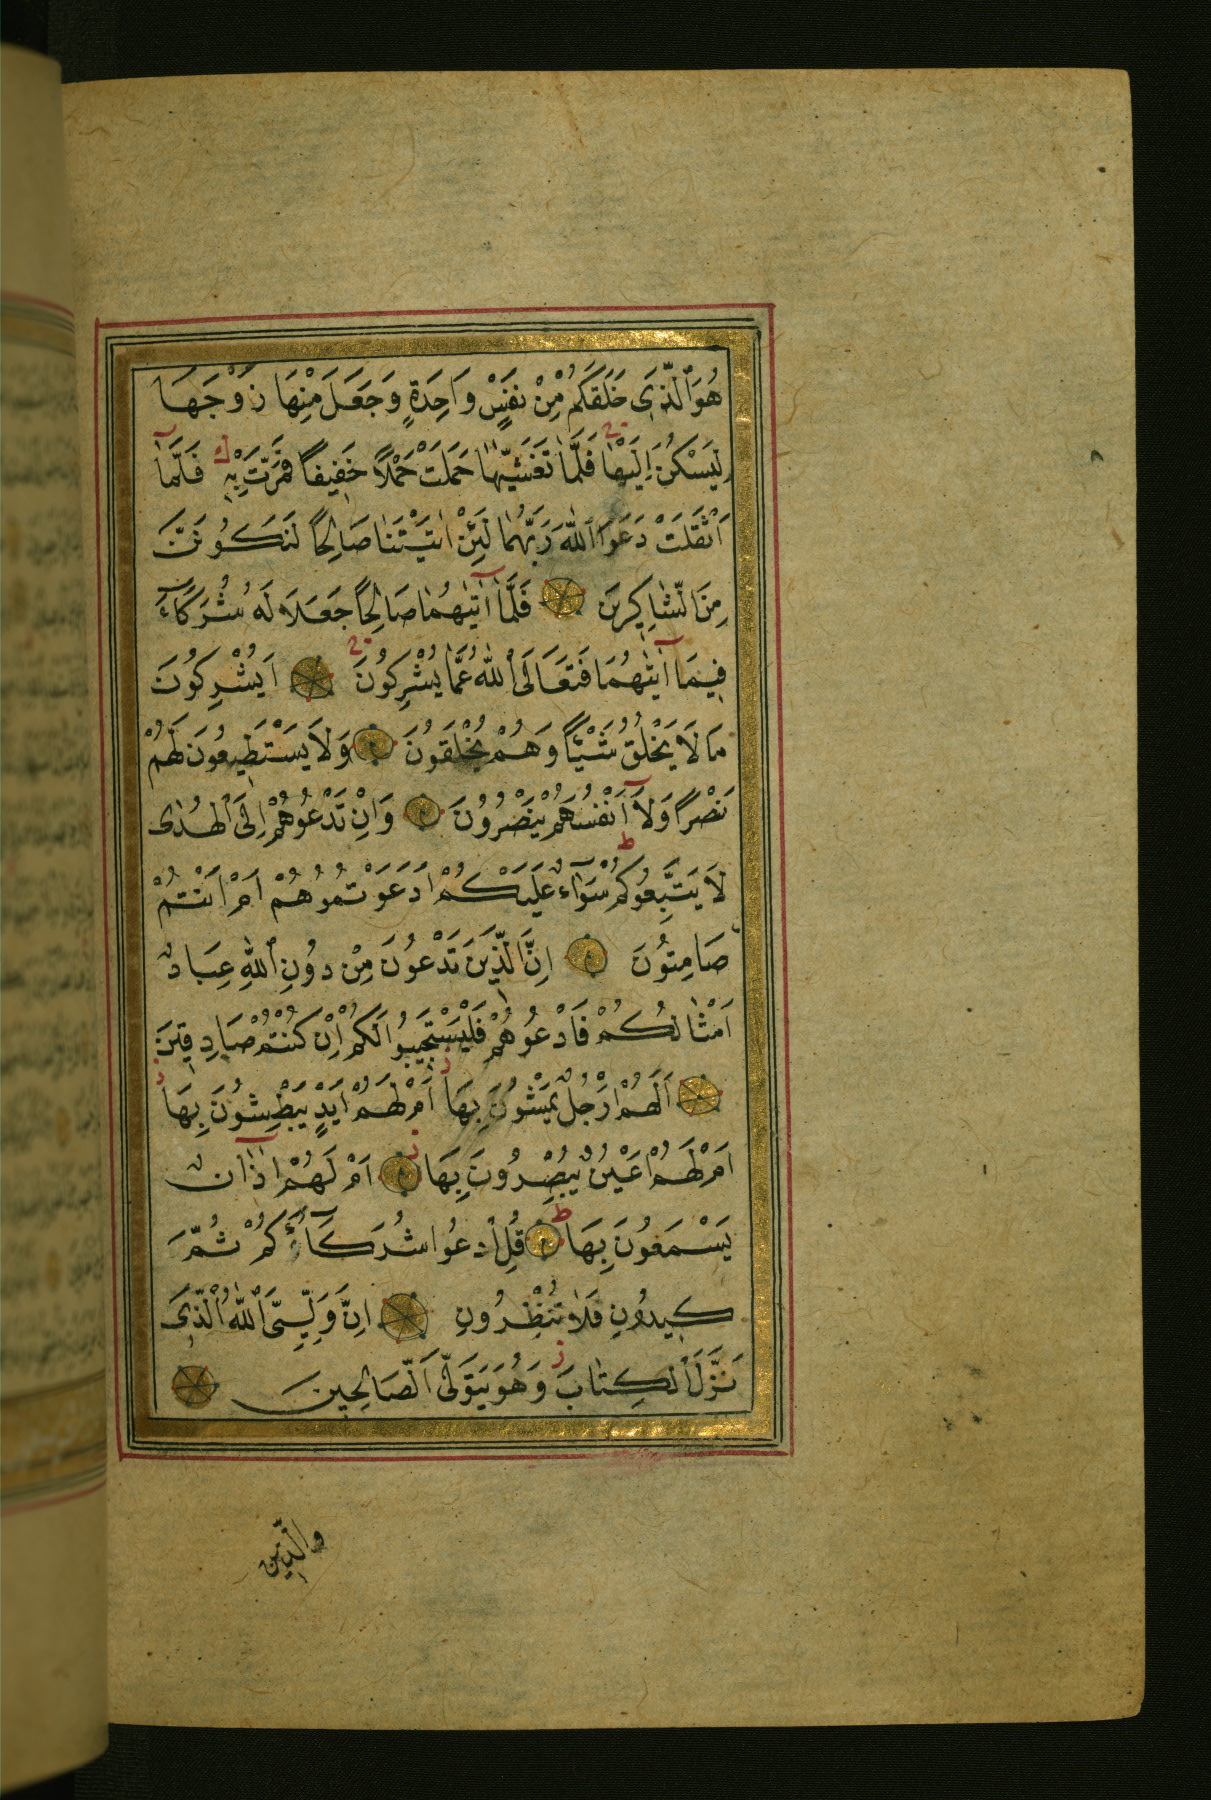 هُوَ ٱلَّذِى خَلَقَكُمْ مِنْ نَفْسٍ وَاحِدَةٍ وَجَعَلَ مِنْهَا زَوْجَهَا
لِيَسْكُنَ اِلَيْهَا فَلَمَّا تَغَشّٰيهَا حَمَلَتْ حَمْلًا خَفِيفًا فَمَرَّتْ بِهٖ فَلَمَّا
اَثْقَلَتْ دَعَوَا ٱللّٰهَ رَبَّهُمَا لَئِنْ اٰتَيْتَنَا صَالِحًا لَنَكُونَنَّ
مِنَ الشَّاكِرِينَ فَلَمَّا اٰتٰيهُمَا صَالِحًا جَعَلَا لَهُ شُرَكَاءَ
فِيمَا اٰتٰيهُمَا فَتَعَالَى ٱللّٰهُ عَمَّا يُشْرِكُونَ اَيُشْرِكُونَ
مَا لَا يَخْلُقُ شَيْئًا وَهُمْ يُخْلَقُونَ وَلَا يَسْتَطِيعُونَ لَهُمْ
نَصْرًا وَلَا اَنْفُسَهُمْ يَنْصُرُونَ وَاِنْ تَدْعُوهُمْ اِلَى ٱلْهُدٰى
لَا يَتَّبِعُوكُمْ سَوَاءٌ عَلَيْكُمْ اَدَعَوْتُمُوهُمْ اَمْ اَنْتُمْ
صَامِتُونَ اِنَّ ٱلَّذِينَ تَدْعُونَ مِنْ دُونِ ٱللّٰهِ عِبَادٌ
اَمْثَالُكُمْ فَادْعُوهُمْ فَلْيَسْتَجِيبُوا لَكُمْ اِنْ كُنْتُمْ صَادِقِينَ
اَلَهُمْ اَرْجُلٌ يَمْشُونَ بِهَا اَمْ لَهُمْ اَيْدٍ يَبْطِشُونَ بِهَا
اَمْ لَهُمْ اَعْيُنٌ يُبْصِرُونَ بِهَا اَمْ لَهُمْ اٰذَانٌ
يَسْمَعُونَ بِهَا قُلِ ٱدْعُوا شُرَكَاءَكُمْ ثُمَّ
كِيدُونِ فَلَا تُنْظِرُونِ اِنَّ وَلِيِّىَ ٱللّٰهُ ٱلَّذِى
نَزَّلَ ٱلْكِتَابَ وَهُوَ يَتَوَلَّى ٱلصَّالِحِينَ
والذين